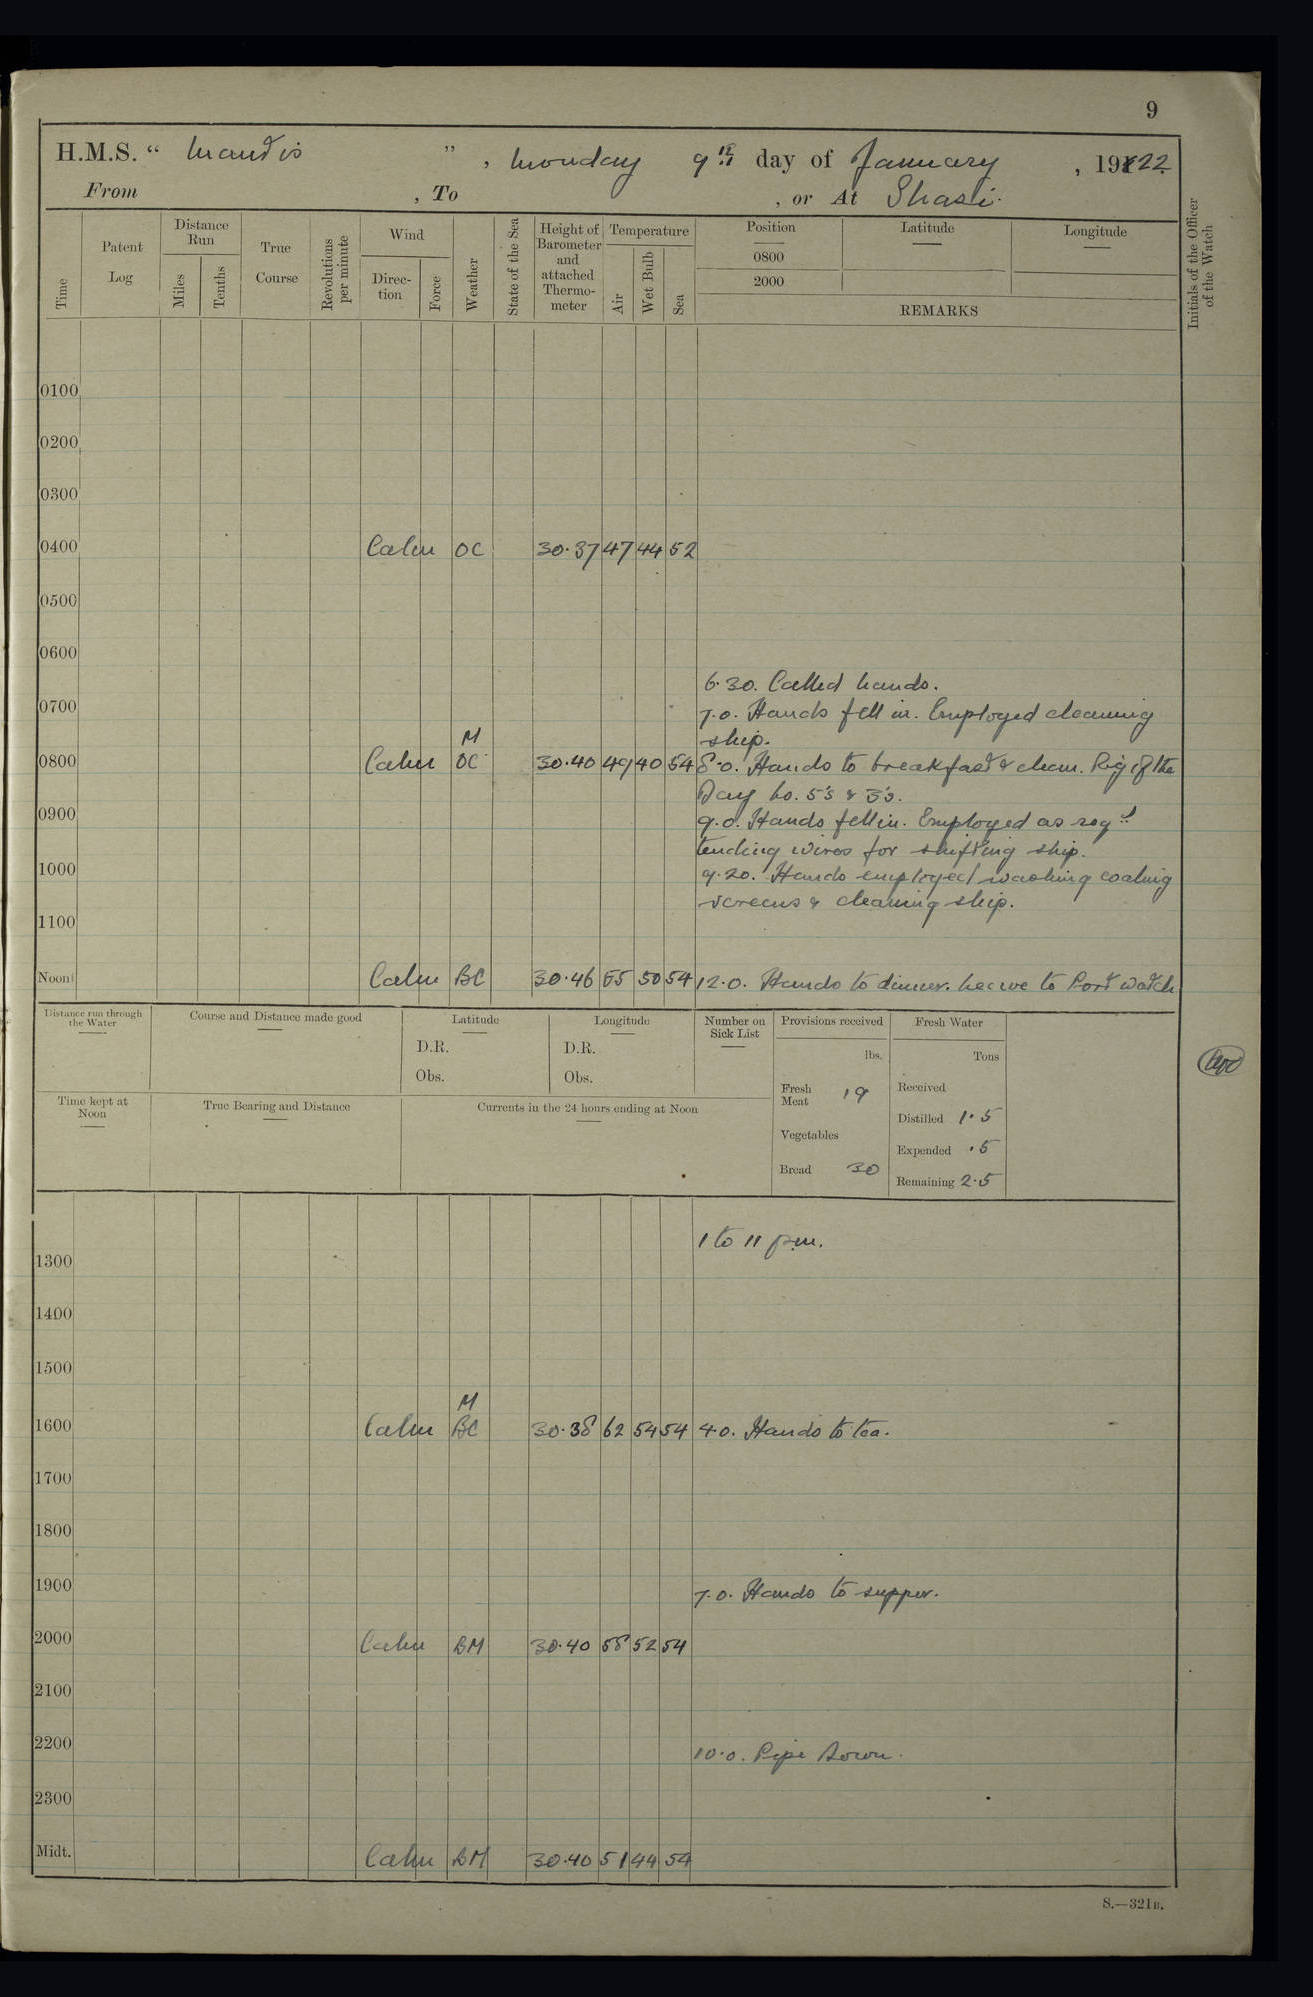 9
H.M.S. “ Mantis ” , Monday 9th day of January , 1922
From , To , or At Shasi.
Time
Patent Log
Distance Run
Miles
Tenths
True Course
Revolutions per minute
Wind
Direction
Force
Weather
State of the Sea
Height of Barometer and attached Thermometer
Temperature
Air
Wet Bulb
Sea
Position
0800
2000
Latitude
Longitude
REMARKS
Initials of the Officer of the Watch
0100
0200
0300
0400 Calm OC 30.37 47 44 52
0500
0600
6.30. Called hands.
0700 7.0. Hands fell in. Employed cleaning
M ship.
0800 Calm OC 30.40 49 40 54 8.0. Hands to breakfast & clean. Rig of the
Day No. 5's & 3's.
0900 9.0. Hands fell in. Employed as reqd
tending wires for shifting ship.
1000 9.20. Hands employed washing coaling
screens & cleaning ship.
1100
Noon Calm BC 30.46 55 50 54 12.0. Hands to dinner. Leave to Port watch
Distance run through the Water
Course and Distance made good
Latitude
D.R.
Obs.
Longitude
D.R.
Obs.
Number on Sick List
Provisions received
lbs.
Fresh Meat 19
Vegetables
Bread 30
Fresh Water
Tons
Received
Distilled 1.5
Expended .5
Remaining 2.5
Time kept at Noon
True Bearing and Distance
Currents in the 24 hours ending at Noon
1 to 11 p.m.
1300
1400
1500
M
1600 Calm BC 30.38 62 54 54 4.0. Hands to tea.
1700
1800
1900 7.0. Hands to supper.
2000 Calm BM 30.40 58 52 54
2100
2200 10.0. Pipe Down.
2300
Midt. Calm BM 30.40 51 44 54
S.—321B.